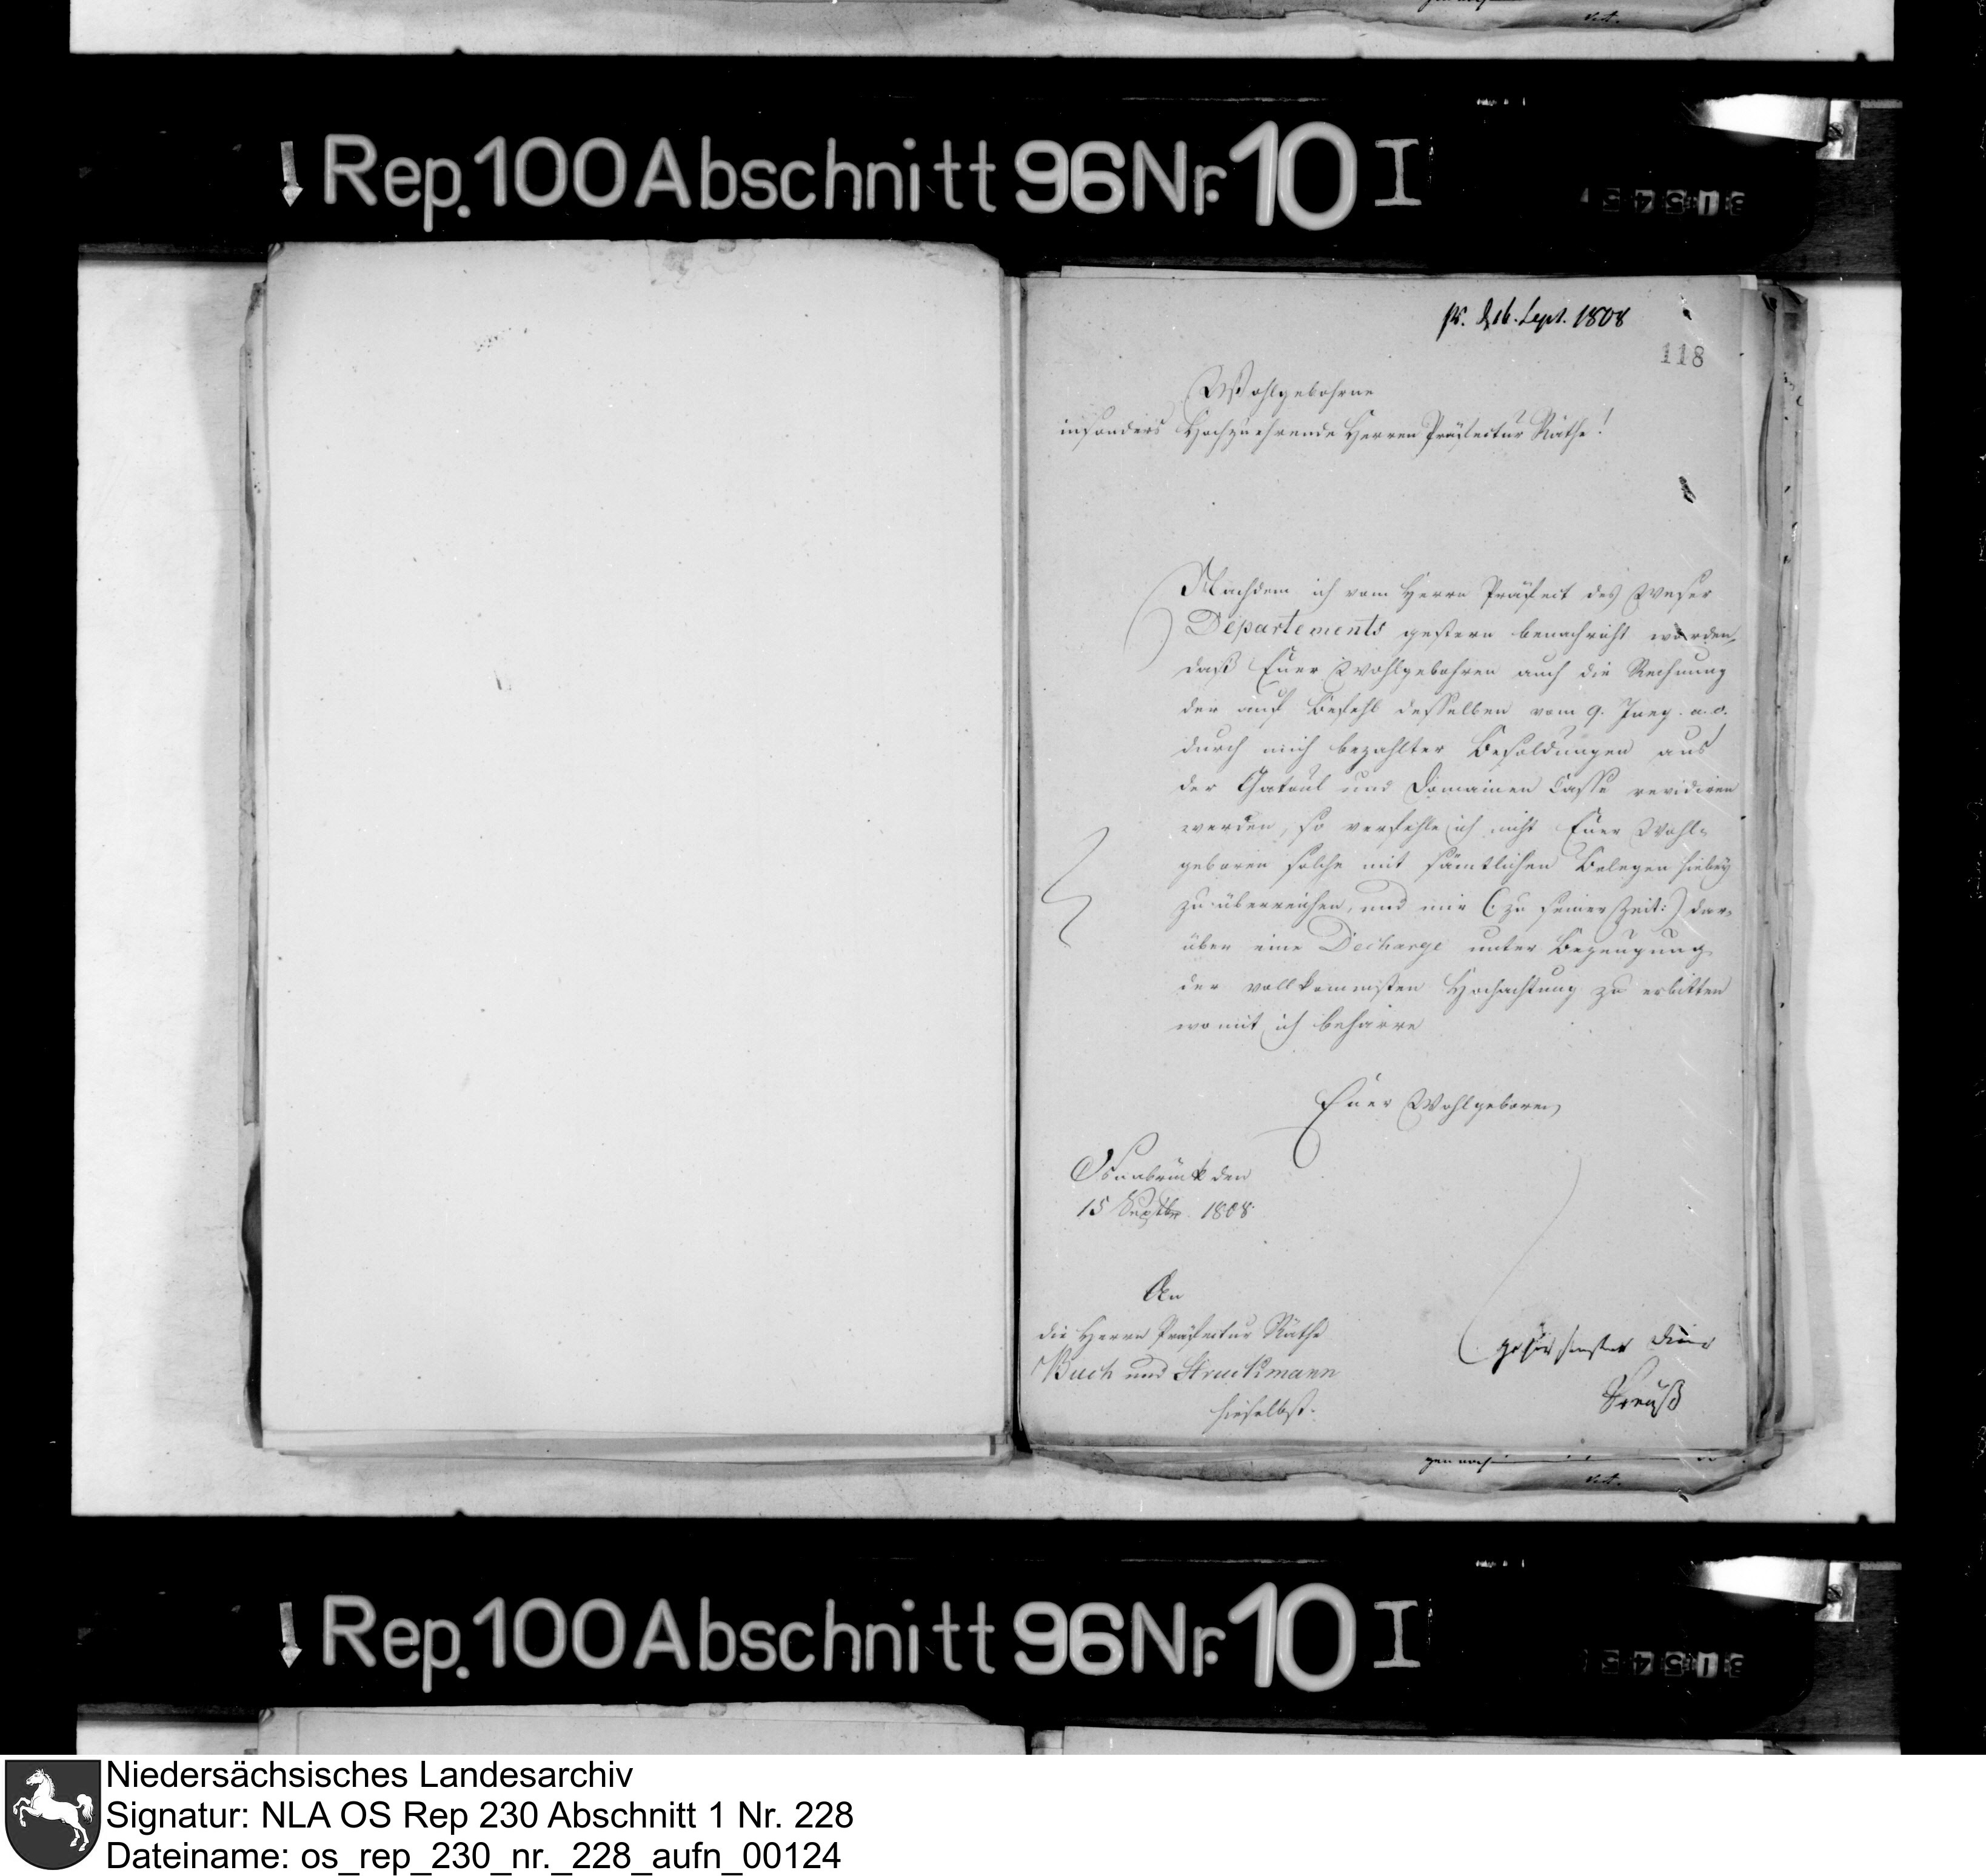 Rep. 100 Abschnitt 96 Nr. 10 I
ps. d. 16. Sept. 1808
118
Wohlgebohrne
insonders Hochzuehrende Herren Präfectur Räthe!
Nachdem ich vom Herrn Präfect des Weser
Départements gestern benachricht worden,
daß Euer Wohlgebohren auch die Rechnung
der auf Befehl desselben vom 9. Juny. a. c.
durch mich bezahlter Besoldungen aus
der und Domainen Casse revidiren
werden, so verfehle ich nicht Euer Wohl-
geboren solche mit sämtlichen Belegen hiebey
zu überreichen, und mir (: zu seiner Zeit :) dar-
über eine Decharge unter Bezeugung
der vollkommensten Hochachtung zu erbitten
womit ich beharre
Euer Wohlgeboren
Osnabrück den
15 Septbr. 1808
An
die Herrn Präfectur Räthe
Buch und Struckmann
hieselbst.
gehorsamster Diener
Preuß
Rep. 100 Abschnitt 96 Nr. 10 I
Niedersächsisches Landesarchiv
Signatur: NLA OS Rep 230 Abschnitt 1 Nr. 228
Dateiname: os_rep_230_nr._228_aufn_00124